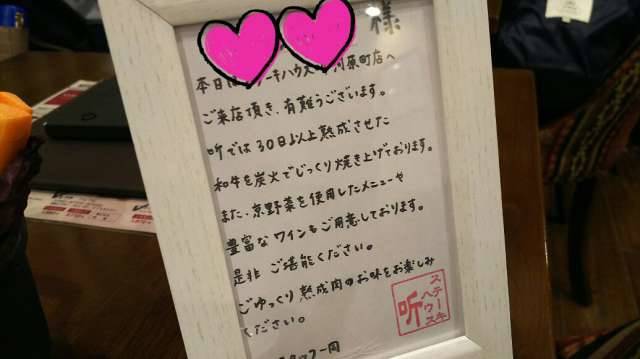 様
本日は ーキハウス 河原町店へ
ご来店頂き、有難うございます。
听では30日以上熟成させた
和牛を炭火でじっくり焼き上げております。
また、京野菜を使用したメニューや
豊富なワインもご用意しております。
是非ご堪能ください。
ごゆっくり熟成肉のお味をお楽しみ
ください。
スタッフ一同
ステーキハウス 听